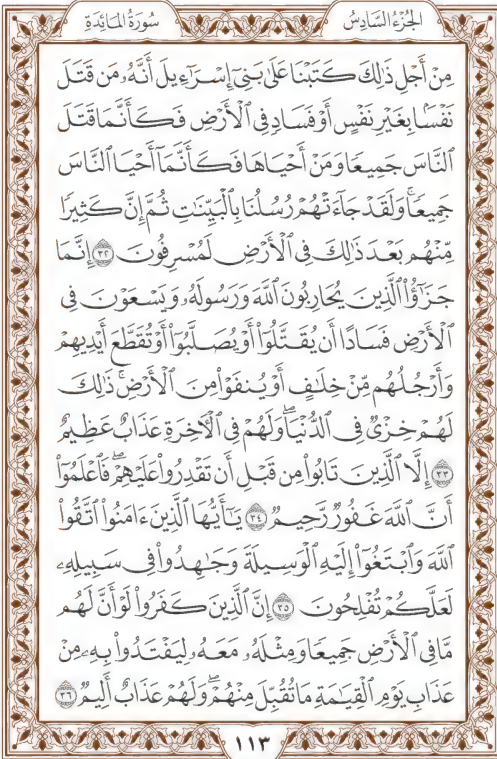 سُورَةُ المَائـِدَةِ
الجُزْءُ السَّادِسُ
مِنْ أَجْلِ ذَٰلِكَ كَتَبْنَا عَلَىٰ بَنِىٓ إِسْرَٰٓءِيلَ أَنَّهُۥ مَن قَتَلَ
نَفْسًۢا بِغَيْرِ نَفْسٍ أَوْ فَسَادٍ فِى ٱلْأَرْضِ فَكَأَنَّمَا قَتَلَ
ٱلنَّاسَ جَمِيعًا وَمَنْ أَحْيَاهَا فَكَأَنَّمَآ أَحْيَا ٱلنَّاسَ
جَمِيعًاۚ وَلَقَدْ جَآءَتْهُمْ رُسُلُنَا بِٱلْبَيِّنَٰتِ ثُمَّ إِنَّ كَثِيرًا
مِّنْهُم بَعْدَ ذَٰلِكَ فِى ٱلْأَرْضِ لَمُسْرِفُونَ ٣٢ إِنَّمَا
جَزَٰٓؤُا۟ ٱلَّذِينَ يُحَارِبُونَ ٱللَّهَ وَرَسُولَهُۥ وَيَسْعَوْنَ فِى
ٱلْأَرْضِ فَسَادًا أَن يُقَتَّلُوٓا۟ أَوْ يُصَلَّبُوٓا۟ أَوْ تُقَطَّعَ أَيْدِيهِمْ
وَأَرْجُلُهُم مِّنْ خِلَٰفٍ أَوْ يُنفَوْا۟ مِنَ ٱلْأَرْضِۚ ذَٰلِكَ
لَهُمْ خِزْىٌ فِى ٱلدُّنْيَاۖ وَلَهُمْ فِى ٱلْـَٔاخِرَةِ عَذَابٌ عَظِيمٌ
٣٣ إِلَّا ٱلَّذِينَ تَابُوا۟ مِن قَبْلِ أَن تَقْدِرُوا۟ عَلَيْهِمْۖ فَٱعْلَمُوٓا۟
أَنَّ ٱللَّهَ غَفُورٌ رَّحِيمٌ ٣٤ يَٰٓأَيُّهَا ٱلَّذِينَ ءَامَنُوا۟ ٱتَّقُوا۟
ٱللَّهَ وَٱبْتَغُوٓا۟ إِلَيْهِ ٱلْوَسِيلَةَ وَجَٰهِدُوا۟ فِى سَبِيلِهِۦ
لَعَلَّكُمْ تُفْلِحُونَ ٣٥ إِنَّ ٱلَّذِينَ كَفَرُوا۟ لَوْ أَنَّ لَهُم
مَّا فِى ٱلْأَرْضِ جَمِيعًا وَمِثْلَهُۥ مَعَهُۥ لِيَفْتَدُوا۟ بِهِۦ مِنْ
عَذَابِ يَوْمِ ٱلْقِيَٰمَةِ مَا تُقُبِّلَ مِنْهُمْۖ وَلَهُمْ عَذَابٌ أَلِيمٌ ٣٦
١١٣